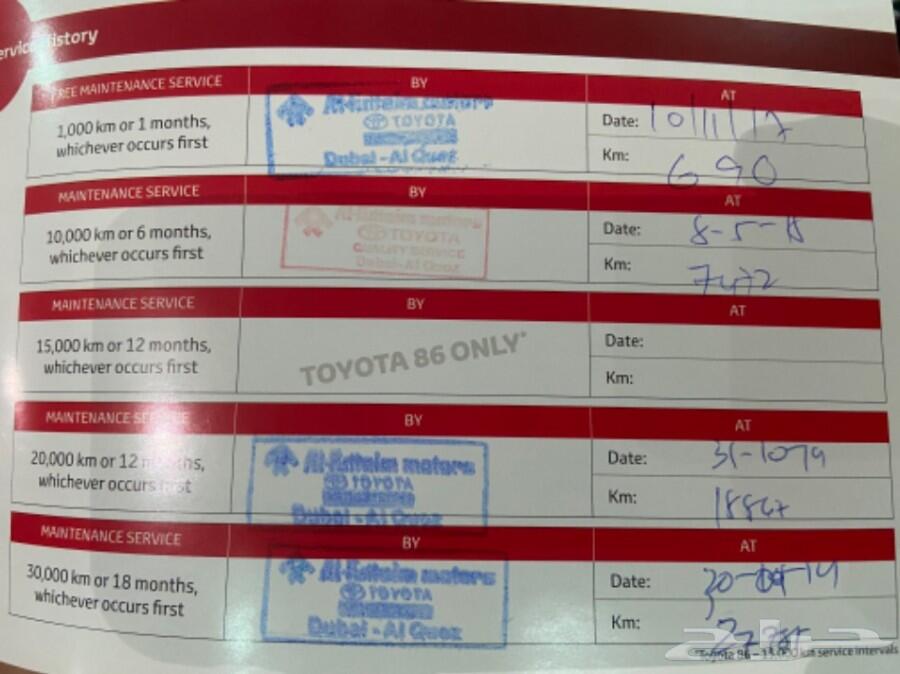 Service History
FREE MAINTENANCE SERVICE BY AT
1,000 km or 1 months,
whichever occurs first
Al-Futtaim motors
TOYOTA
Dubai - Al Quoz
Date: 10/11/17
Km: 690
MAINTENANCE SERVICE BY AT
10,000 km or 6 months,
whichever occurs first
Al-Futtaim motors
TOYOTA
QUALITY SERVICE
Dubai - Al Quoz
Date: 8-5-18
Km: 7472
MAINTENANCE SERVICE BY AT
15,000 km or 12 months,
whichever occurs first
TOYOTA 86 ONLY*
Date:
Km:
MAINTENANCE SERVICE BY AT
20,000 km or 12 months,
whichever occurs first
Al-Futtaim motors
TOYOTA
Dubai - Al Quoz
Date:
Km:
MAINTENANCE SERVICE BY AT
30,000 km or 18 months,
whichever occurs first
Al-Futtaim motors
TOYOTA
Dubai - Al Quoz
Date:
Km:
*Toyota 86 – 15,000 km service intervals
حراج